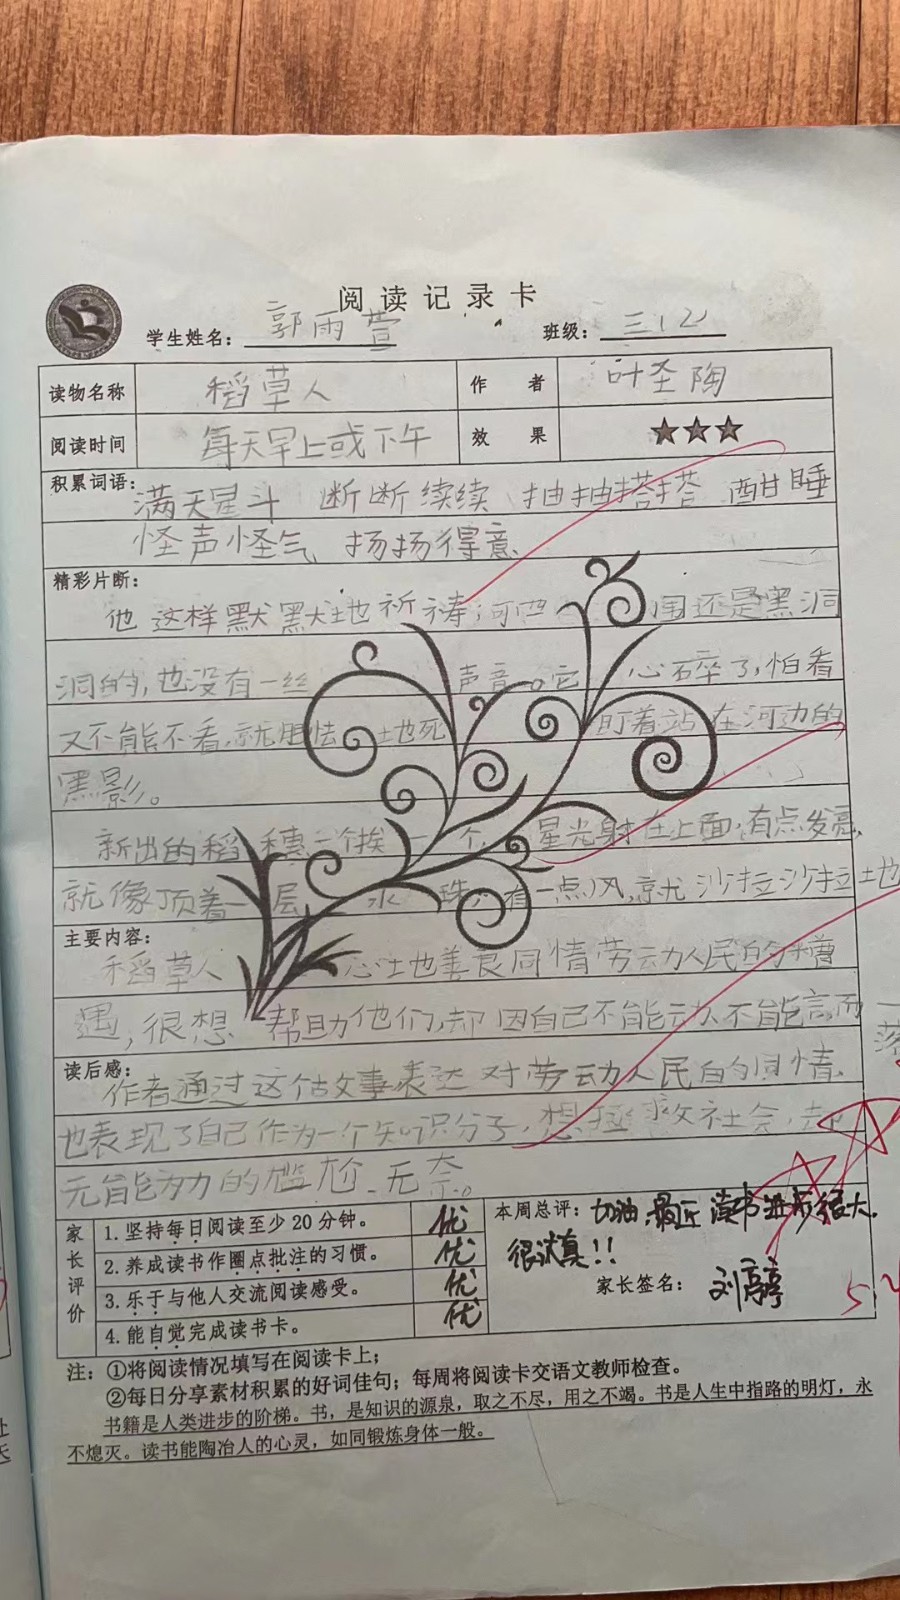 阅读记录卡
学生姓名： 郭雨萱 班级： 三(2)
读物名称 稻草人 作者 叶圣陶
阅读时间 每天早上或下午 效果 ★★★
积累词语：
满天星斗 断断续续 抽抽搭搭 酣睡
怪声怪气 扬扬得意
精彩片断：
他这样默默地祈祷，河 围还是黑洞
洞的，也没有一丝 声音。它 心碎了，怕看
又不能不看，就胆怯 地死 盯着站在河边的
黑影。
新出的稻穗一个挨一个， 星光射在上面，有点发亮，
就像顶着一层 水 珠， 有一点风，就沙拉沙拉地
主要内容：
稻草人 心地善良同情劳动人民的遭
遇，很想 帮助他们，却因自己不能动不能言而一
落
读后感：
作者通过这个故事表达对劳动人民的同情
也表现了自己作为一个知识分子，想拯救社会，却
无能为力的尴尬、无奈。
家长评价
1.坚持每日阅读至少20分钟。 优
2.养成读书作圈点批注的习惯。 优
3.乐于与他人交流阅读感受。 优
4.能自觉完成读书卡。 优
本周总评：加油，最近读书进步很大，
很认真！！
家长签名： 刘亭亭
注：①将阅读情况填写在阅读卡上；
②每日分享素材积累的好词佳句；每周将阅读卡交语文教师检查。
书籍是人类进步的阶梯。书，是知识的源泉，取之不尽，用之不竭。书是人生中指路的明灯，永
不熄灭。读书能陶冶人的心灵，如同锻炼身体一般。